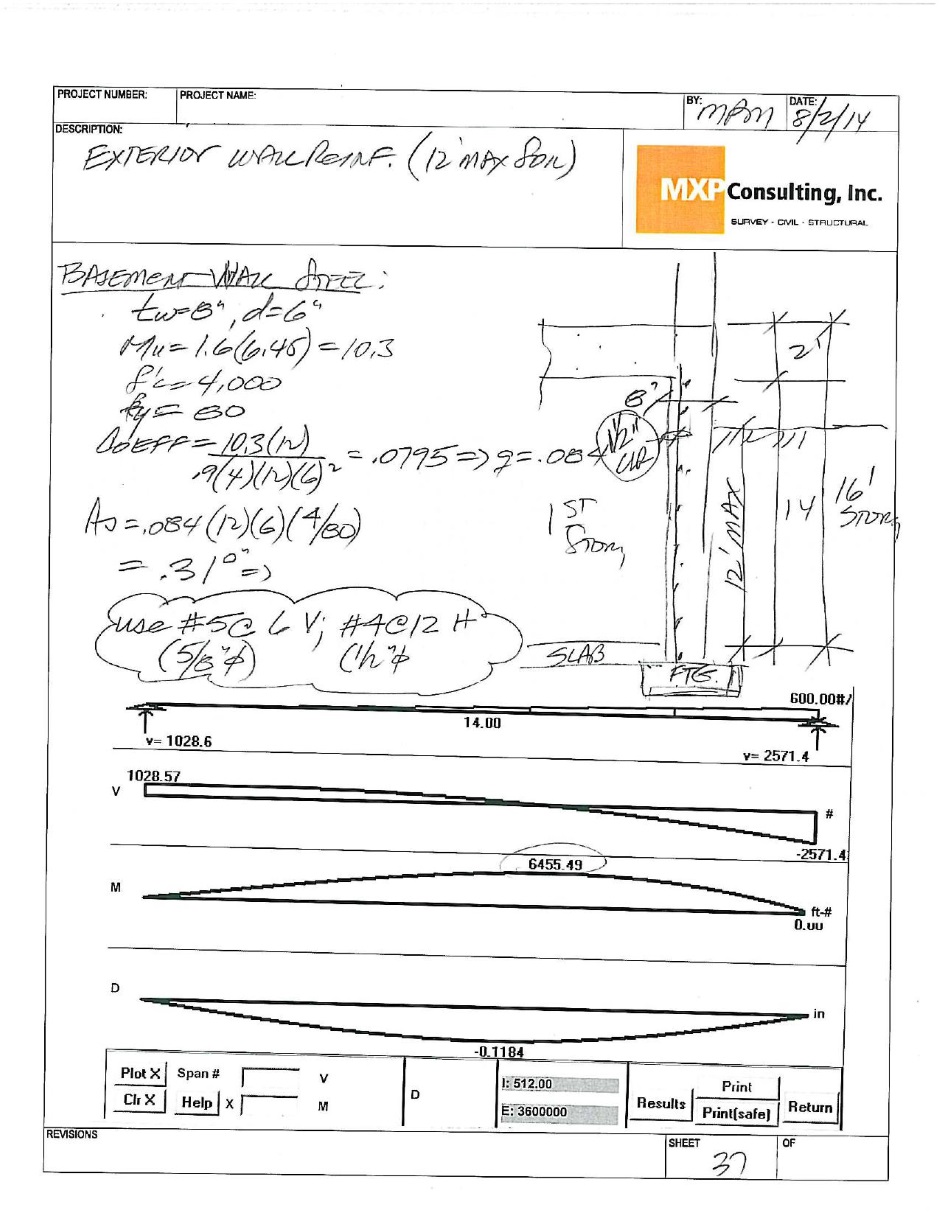 PROJECT NUMBER:
PROJECT NAME:
BY:
MPM
DATE:
8/2/14
DESCRIPTION:
EXTERIOR WALL REINF. (12' MAX SOIL)
MXP Consulting, Inc.
SURVEY - CIVIL - STRUCTURAL
BASEMENT WALL STEEL:
tw=8", d=6"
Mu = 1.6(6.45) = 10.3
f'c = 4,000
fy = 60
COEFF = 10.3(12) / .9(4)(12)(6)² = .0795 => q = .084
As = .084 (12)(6)(4/60)
= .31 □" =>
use #5@ 6 V; #4@12 H
(5/8"φ)
(1/2"φ
8"
CLR
2'
1ST
STORY
12' MAX
14
16'
STORY
SLAB
FTG.
600.00#/
14.00
v= 1028.6
v= 2571.4
1028.57
V
#
-2571.4
6455.49
M
ft-#
0.00
D
in
-0.1184
Plot X
Span #
V
Clr X
Help
X
M
D
I: 512.00
E: 3600000
Results
Print
Print(safe)
Return
REVISIONS
SHEET
37
OF